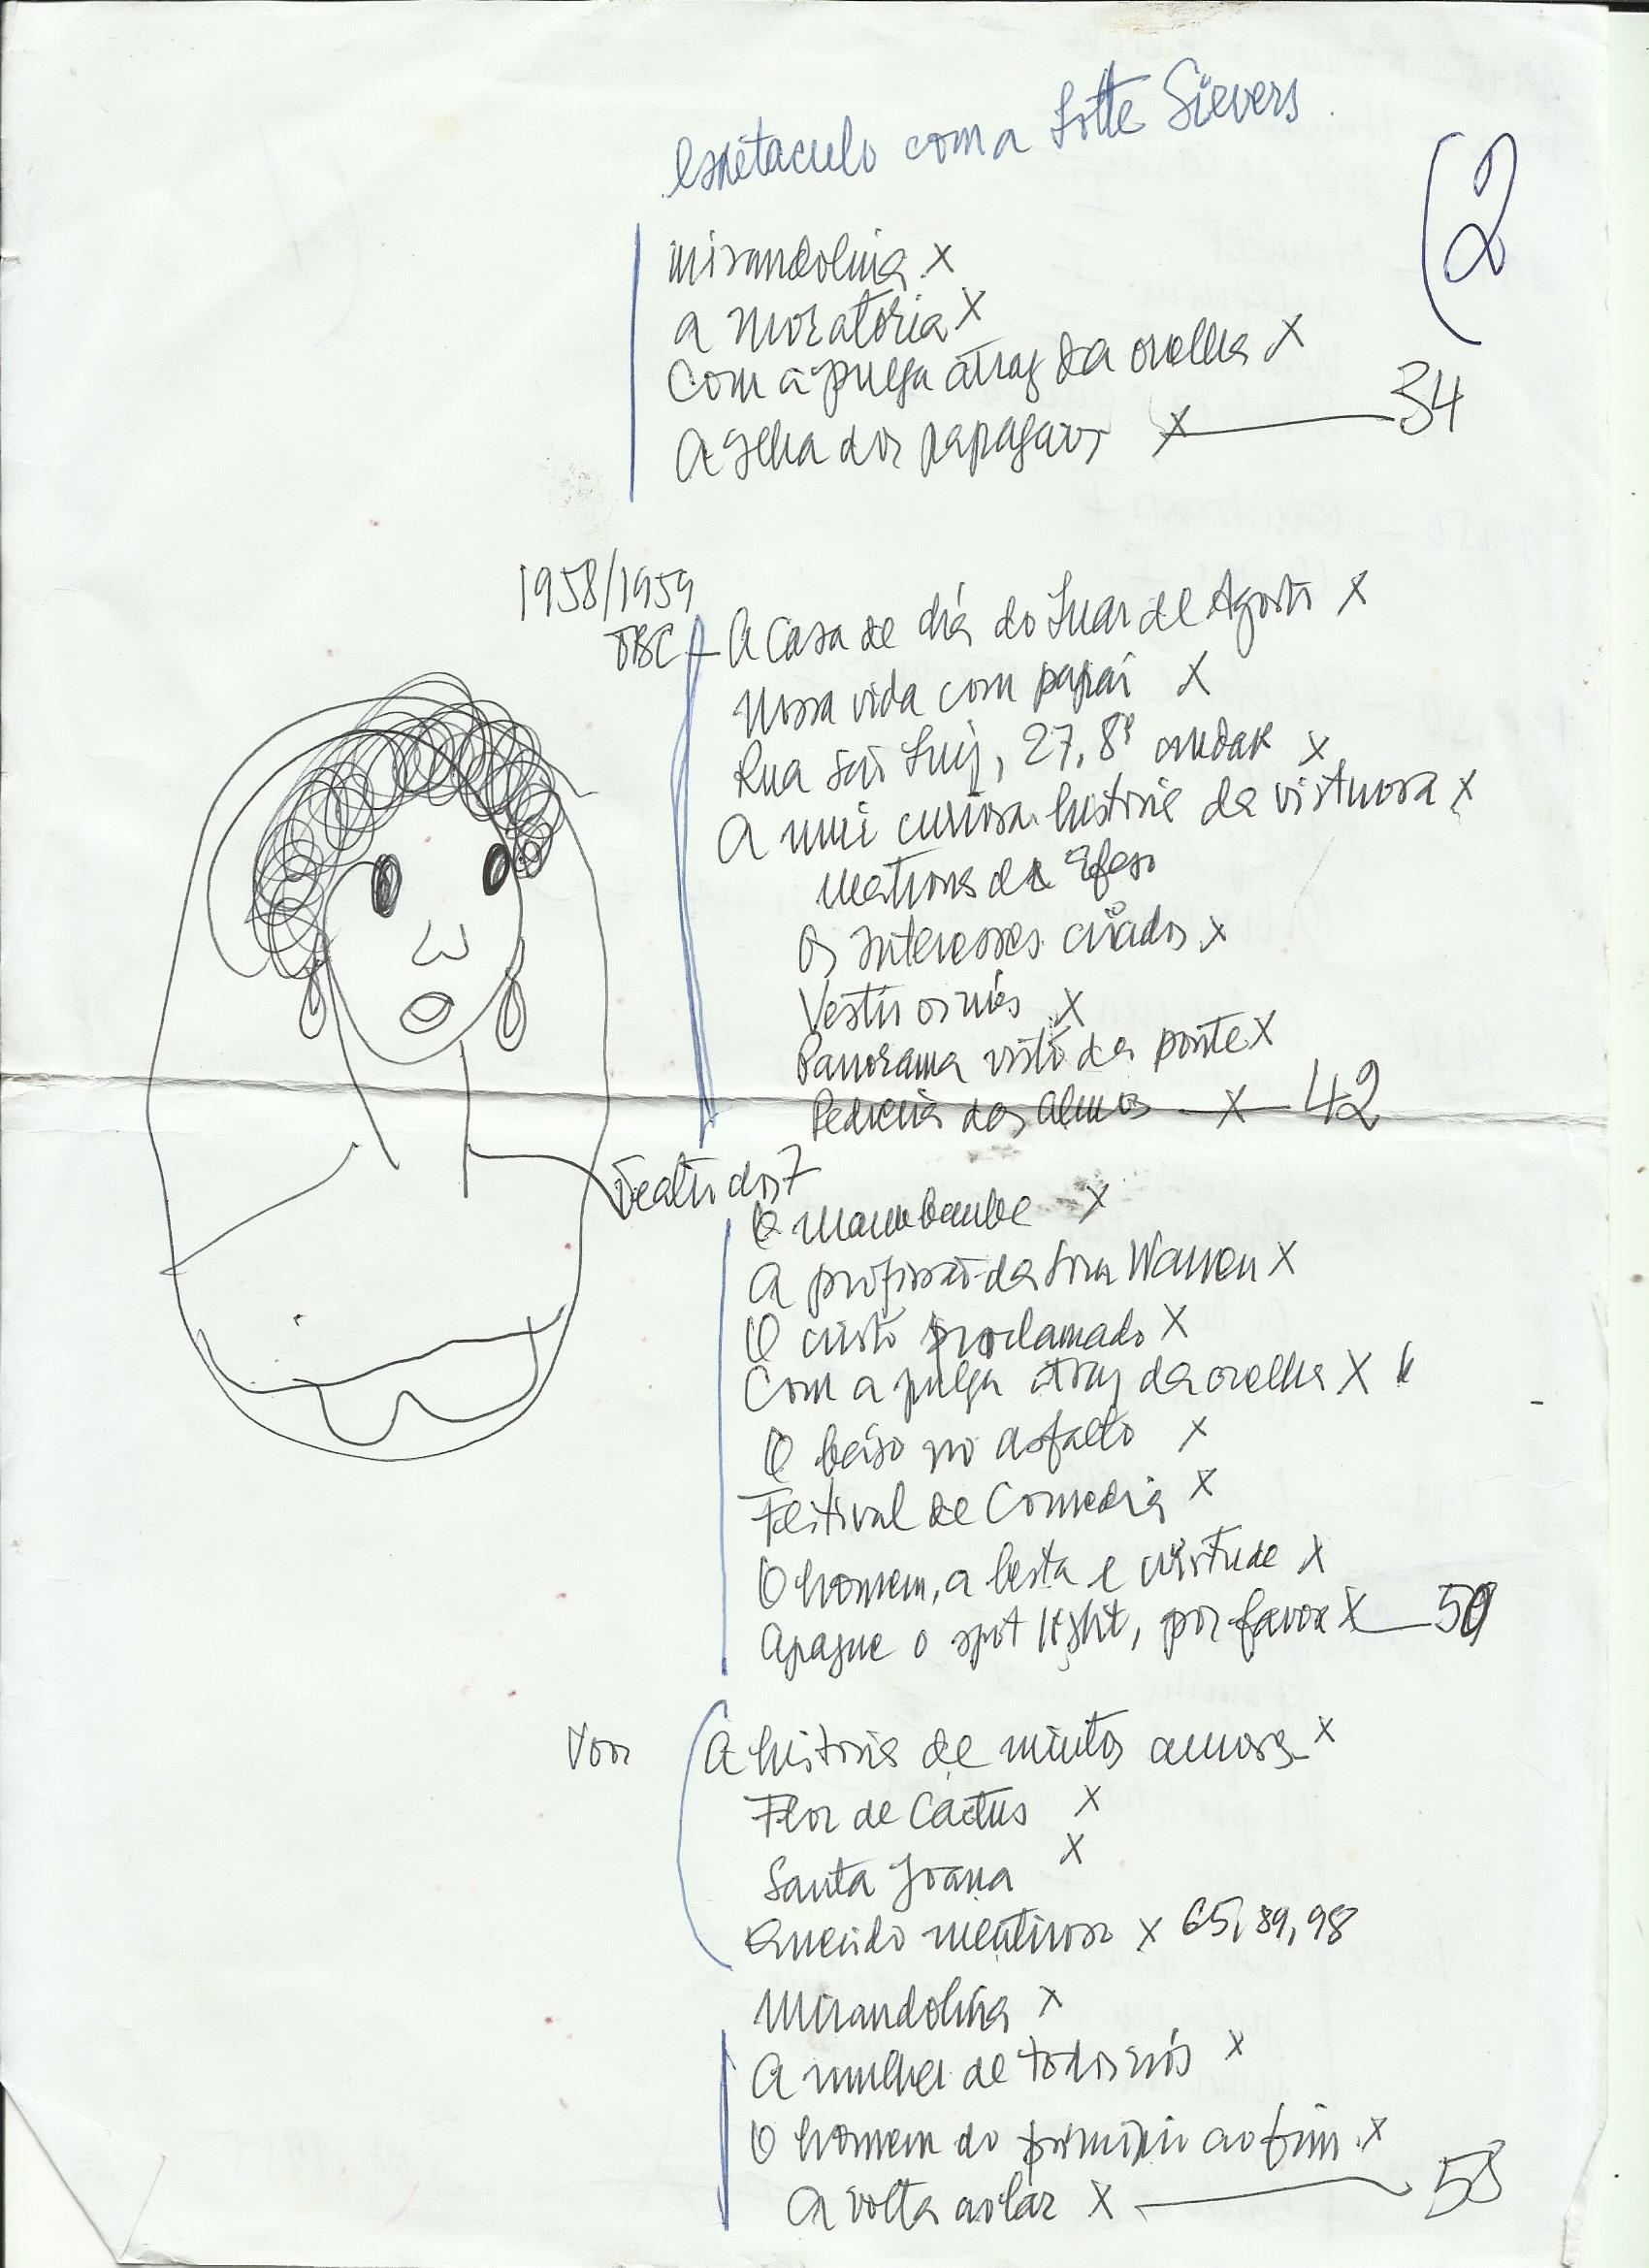 espetaculo com a Lotte Sievers.
(2
mirandolina X
a moratória X
Com a pulga atraz da orelha X
A Ilha dos papagaios X — 34
1958/1959
TBC — A Casa de chá do Luar de Agosto X
Nossa vida com papai X
Rua São Luiz, 27, 8º andar X
A mui curiosa historia da virtuosa X
matrona de Efeso
Os Interesses criados X
Vestir os nús X
Panorama visto da ponte X
Pedreira das almas — X — 42
Teatro dos 7
O mambembe X
A profissão da Sra Warren X
O cristo proclamado X
Com a pulga atraz da orelha X
O beijo no asfalto X
Festival de Comedia X
O homem, a besta e virtude X
Apague o spot light, por favor X — 50
A historia de muitos amores X
Flor de Cactus X
Santa Joana X
Querido mentiroso X 65, 89, 98
Mirandolina X
A mulher de todos nós X
O homem do principio ao fim X
A volta ao lar X — 58